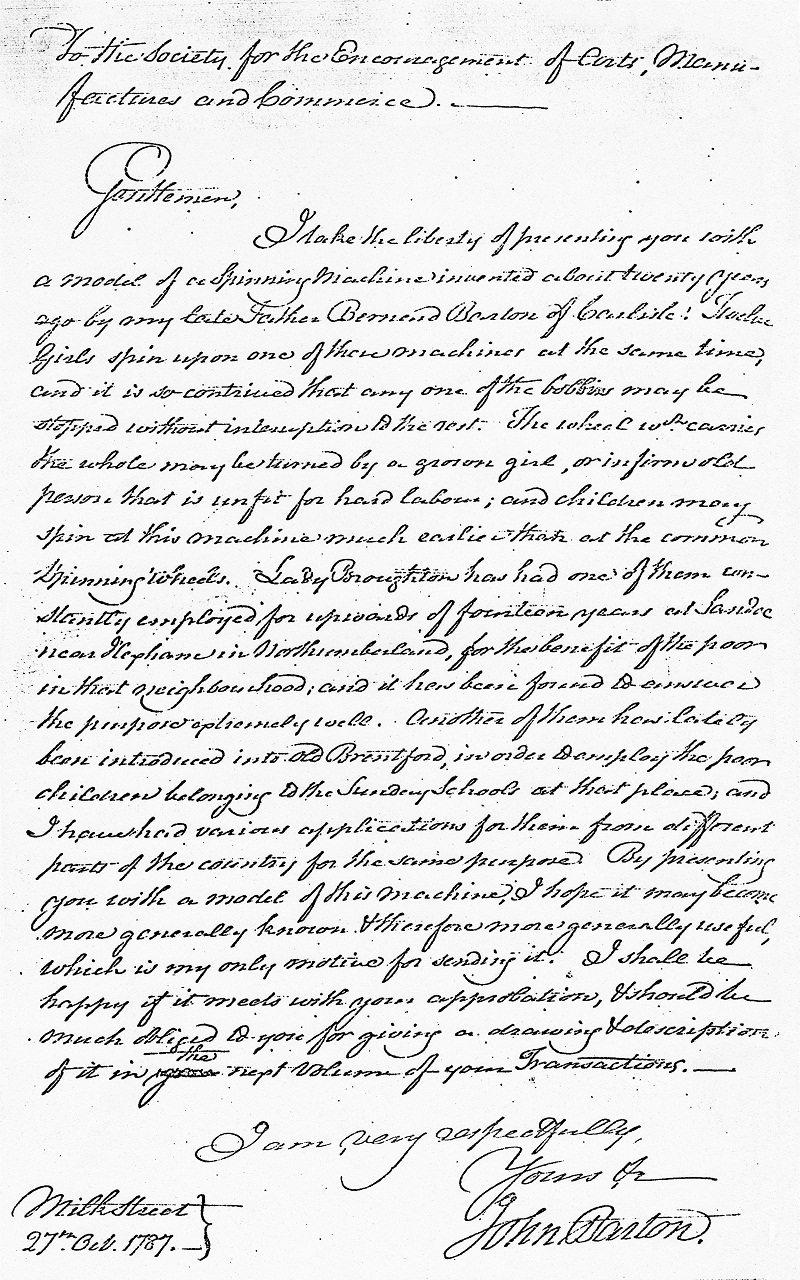 To the Society for the Encouragement of Arts, Manu-
factures and Commerce. —
Gentlemen,
I take the liberty of presenting you with
a model of a Spinning Machine invented about twenty years
ago by my late Father Bernard Barton of Carlisle! Twelve
Girls spin upon one of these machines at the same time,
and it is so contrived that any one of the bobbins may be
stopped without interruption to the rest. The wheel wch carries
the whole may be turned by a grown girl, or infirm old
person that is unfit for hard labour; and children may
spin at this machine much earlier than at the common
Spinning Wheels. Lady Broughton has had one of them con-
stantly employed for upwards of fourteen years at Sandoe
near Hexham in Northumberland, for the benefit of the poor
in that neighbourhood; and it has been found to answer
the purpose extremely well. Another of them has lately
been introduced into Old Brentford, in order to employ the poor
children belonging to the Sunday Schools at that place; and
I have had various applications for them from different
parts of the country for the same purpose. By presenting
you with a model of this machine, I hope it may become
more generally known & therefore more generally useful,
which is my only motive for sending it. I shall be
happy if it meets with your approbation, & should be
much obliged to you for giving a drawing & description
of it in the next Volume of your Transactions. —
I am, very respectfully,
Yours &c
John Barton.
Milk Street
27th Oct. 1787. —